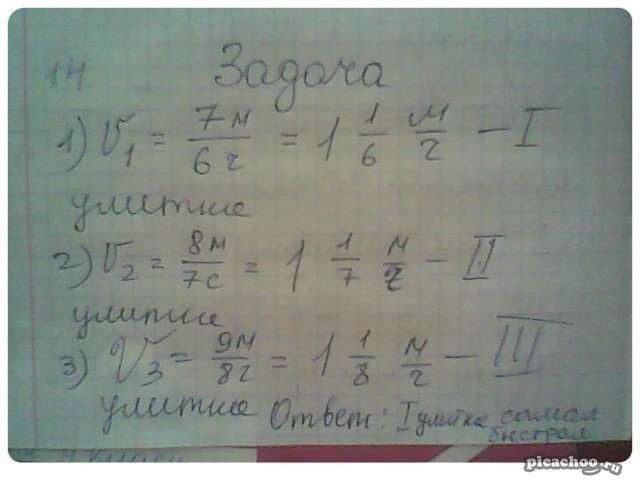 14. Задача
1) V₁ = 7м/6ч = 1 1/6 м/ч — I
улитка
2) V₂ = 8м/7с = 1 1/7 м/ч — II
улитка
3) V₃ = 9м/8ч = 1 1/8 м/ч — III
улитка Ответ: I улитка самая
быстрая
picachoo.ru